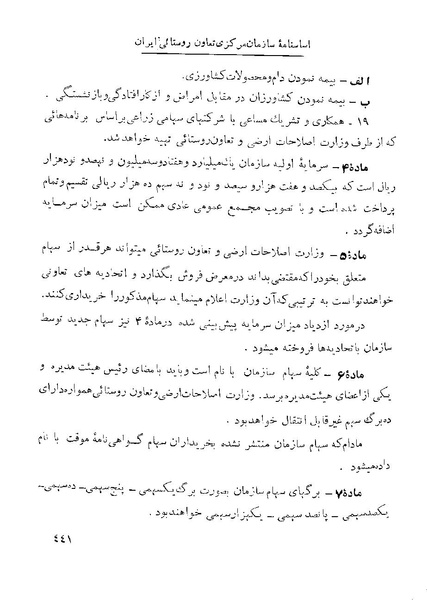 اساسنامهٔ سازمان مرکزی تعاون روستائی ایران
الف – بیمه نمودن دام و محصولات کشاورزی.
ب – بیمه نمودن کشاورزان در مقابل امراض و از کارافتادگی و بازنشستگی.
۱۹ – همکاری و تشریک مساعی با شرکتهای سهامی زراعی براساس برنامه‌هائی
که از طرف وزارت اصلاحات ارضی و تعاون روستائی تهیه خواهد شد.
مادهٔ ۴ – سرمایهٔ اولیه سازمان یک میلیارد و هفتاد و سه میلیون و نهصد و نود هزار
ریال است که بیکصد و هفت هزار و سیصد و نود و نه سهم ده هزار ریالی تقسیم و تمام
پرداخت شده است و با تصویب مجمع عمومی عادی ممکن است میزان سرمایه
اضافه گردد.
مادهٔ ۵ – وزارت اصلاحات ارضی و تعاون روستائی میتواند هر قدر از سهام
متعلق بخود را که مقتضی بداند در معرض فروش بگذارد و اتحادیه های تعاونی
خواهند توانست به ترتیبی که آن وزارت اعلام مینماید سهام مذکور را خریداری کنند.
در مورد ازدیاد میزان سرمایه پیش بینی شده در مادهٔ ۴ نیز سهام جدید توسط
سازمان باتحادیه‌ها فروخته میشود.
مادهٔ ۶ – کلیهٔ سهام سازمان با نام است و باید بامضای رئیس هیئت مدیره و
یکی از اعضای هیئت مدیره برسد. وزارت اصلاحات ارضی و تعاون روستائی همواره دارای
ده برگ سهم غیرقابل انتقال خواهد بود.
مادام که سهام سازمان منتشر نشده بخریداران سهام گواهی نامهٔ موقت با نام
داده میشود.
مادهٔ ۷ – برگهای سهام سازمان بصورت برگ یکسهمی – پنج سهمی – ده سهمی –
یکصد سهمی – پانصد سهمی – یکهزار سهمی خواهند بود.
۴۴۱